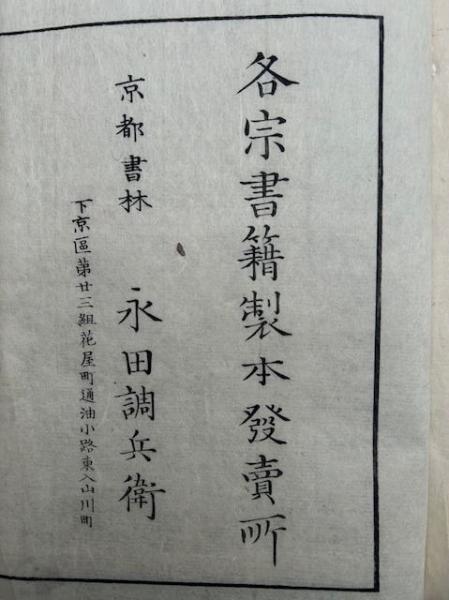 各宗書籍製本發賣所
京都書林 永田調兵衛
下京區第廿三組花屋町通油小路東入山川町